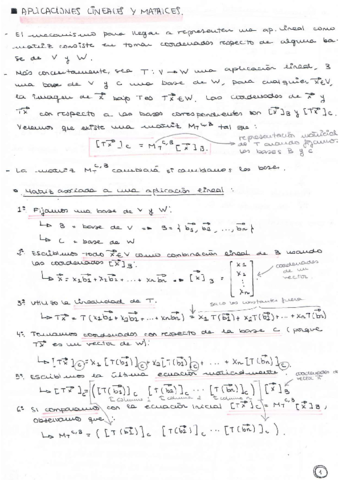 ■ APLICACIONES LINEALES Y MATRICES.
- El mecanismo para llegar a representar una ap. lineal como
matriz consiste en tomar coordenadas respecto de alguna ba-
se de V y W.
- Más concretamente, sea T: V → W una aplicación lineal, B
una base de V y C una base de W, para cualquier x⃗ ∈ V,
la imagen de x⃗ bajo T es Tx⃗ ∈ W. Las coordenadas de x⃗ y
Tx⃗ con respecto a las bases correspondientes son [x⃗]B y [Tx⃗]C.
Veremos que existe una matriz M_T^{C,B} tal que:
[Tx⃗]C = M_T^{C,B} [x⃗]B.
representación matricial
de T cuando fijamos
las bases B y C
- La matriz M_T^{C,B} cambiará si cambiamos las bases.
Matriz asociada a una aplicación lineal:
1º Fijamos una base de V y W:
↳ B = base de V → B = {b₁, b₂, ..., bn}
↳ C = base de W
2º Escribimos todo x⃗ ∈ V como combinación lineal de B usando
las coordenadas [x⃗]B.
↳ x⃗ = x₁b₁ + x₂b₂ + ... + xnbn → [x⃗]B = [x₁ x₂ ⋮ xn]
coordenadas
de un
vector
3º Utilizo la linealidad de T.
saco las constantes fuera
↳ Tx⃗ = T(x₁b₁ + x₂b₂ + ... + xnbn) = x₁T(b₁) + x₂T(b₂) + ... + xnT(bn)
4º Tomamos coordenadas con respecto de la base C (porque
Tx⃗ es un vector de W).
↳ [Tx⃗]C = x₁[T(b₁)]C + x₂[T(b₂)]C + ... + xn[T(bn)]C
5º Escribimos la última ecuación matricialmente
↳ [Tx⃗]C = ([T(b₁)]C [T(b₂)]C ... [T(bn)]C) [x⃗]B
6º Si comparamos con la ecuación inicial [Tx⃗]C = M_T^{C,B} [x⃗]B,
observamos que:
↳ M_T^{C,B} = ([T(b₁)]C [T(b₂)]C ... [T(bn)]C).
1